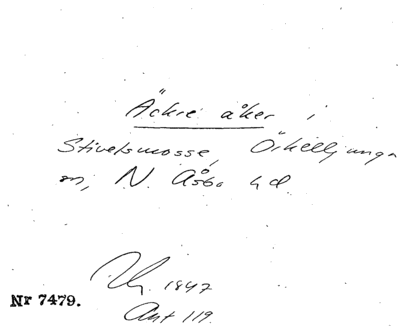 Äckre åker i
Stivelsmosse, Örkelljunga
sn, N. Åsbo hd.
1847
Nr 7479.
Akt 119.